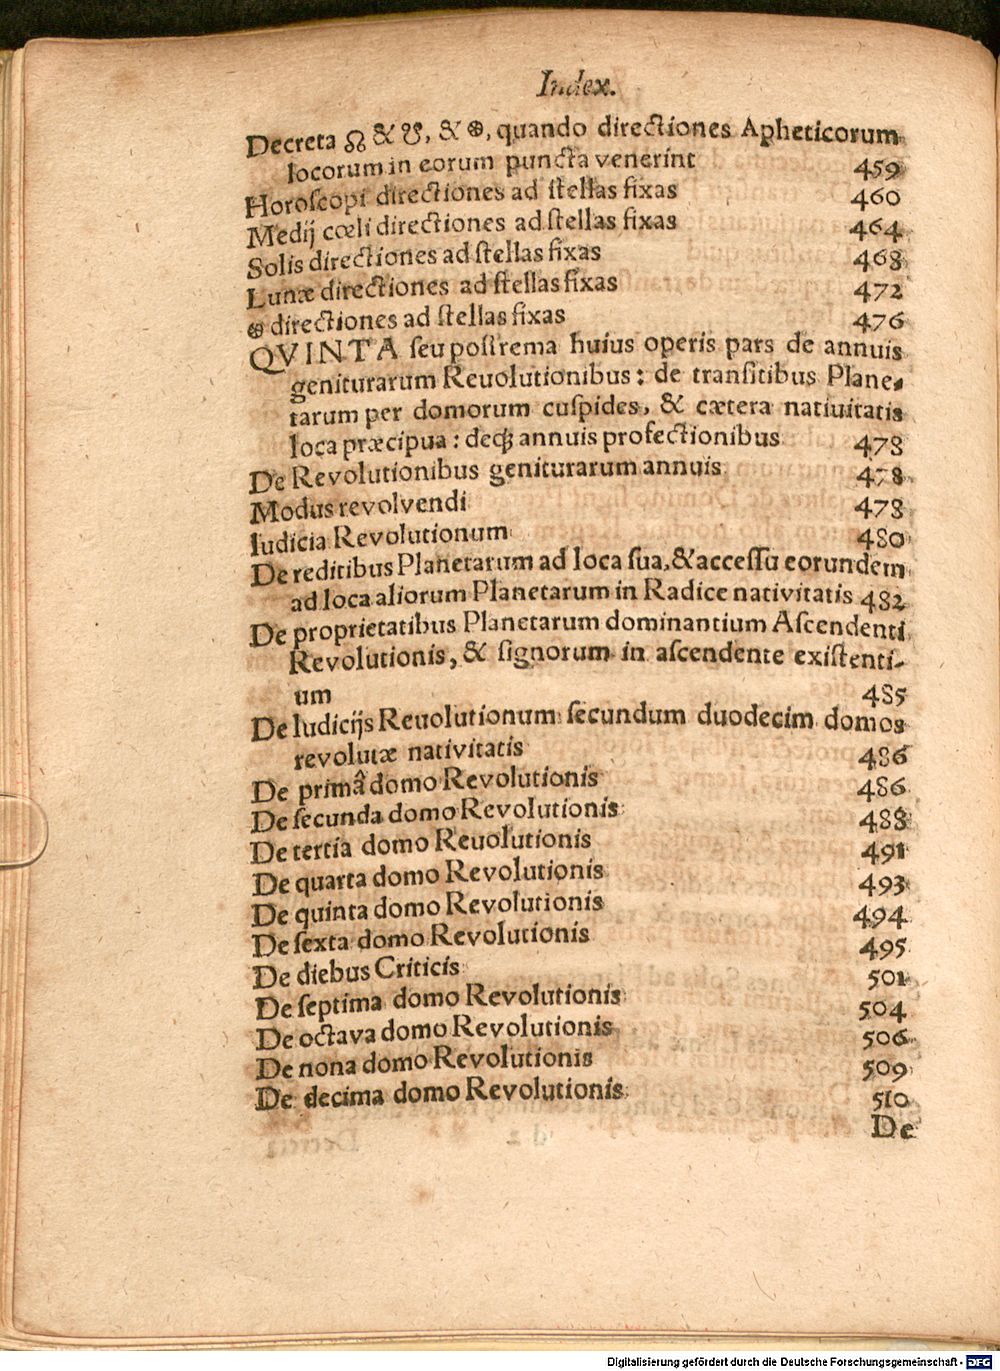 Index.
Decreta ☊ & ☋, & ⊕, quando directiones Apheticorum
locorum in eorum puncta venerint 459
Horoſcopi directiones ad ſtellas fixas 460
Medij cœli directiones ad ſtellas fixas 464
Solis directiones ad ſtellas fixas 468
Lunæ directiones ad ſtellas fixas 472
⊕ directiones ad ſtellas fixas 476
QVINTA ſeu poſtrema huius operis pars de annuis
geniturarum Reuolutionibus: de tranſitibus Plane-
tarum per domorum cuſpides, & cætera nativitatis
loca præcipua: deq́; annuis profectionibus 478
De Revolutionibus geniturarum annuis 478
Modus revolvendi 478
Iudicia Revolutionum 480
De reditibus Planetarum ad loca ſua, & acceſſu eorundem
ad loca aliorum Planetarum in Radice nativitatis 482
De proprietatibus Planetarum dominantium Aſcendenti
Revolutionis, & signorum in aſcendente exiſtenti-
um 485
De Iudicijs Reuolutionum ſecundum duodecim domos
revolutæ nativitatis 486
De primâ domo Revolutionis 486
De ſecunda domo Revolutionis 488
De tertia domo Reuolutionis 491
De quarta domo Revolutionis 493
De quinta domo Revolutionis 494
De ſexta domo Revolutionis 495
De diebus Criticis 501
De ſeptima domo Revolutionis 504
De octava domo Revolutionis 506
De nona domo Revolutionis 509
De decima domo Revolutionis 510
De
Digitalisierung gefördert durch die Deutsche Forschungsgemeinschaft - DFG